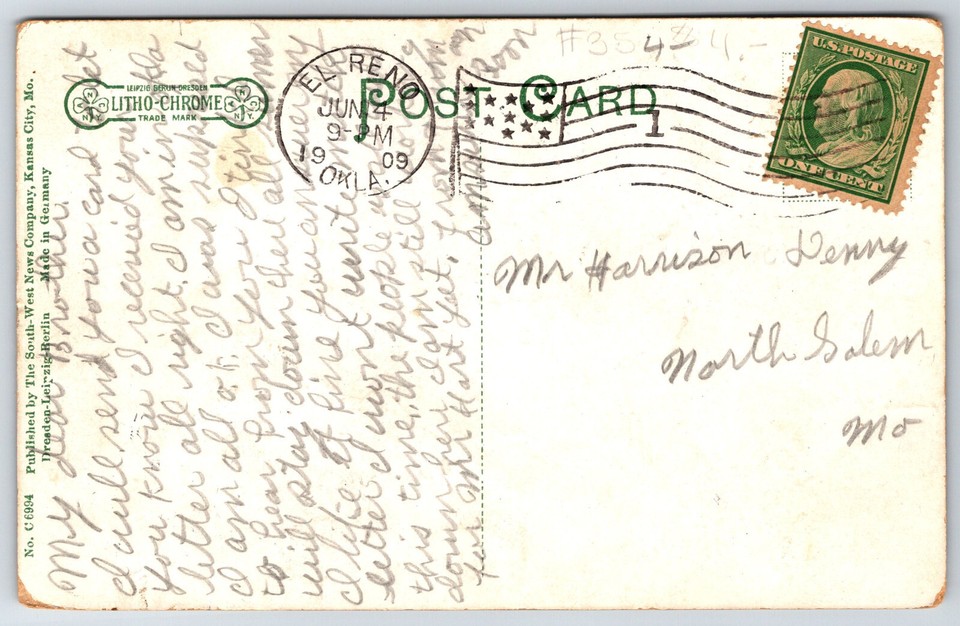 No. C 6994 Published by The South-West News Company, Kansas City, Mo.
Dresden-Leipzig-Berlin Made in Germany
LEIPZIG BERLIN DRESDEN
LITHO-CHROME
TRADE MARK
POST CARD
EL RENO
JUN 4
9-PM
1909
OKLA.
1
#35 4 4,-
U.S. POSTAGE
ONE CENT
Mr Harrison Denny
North Salem
Mo
My dear Brother
I will send you a card to let
you know I received your
letter all right. I am in
I am all o.k. I was
to hear from you
will stay down here all summer
I like it fine
letter I won't write
this time, the people
down here I am still
for Mr Hart yet. From